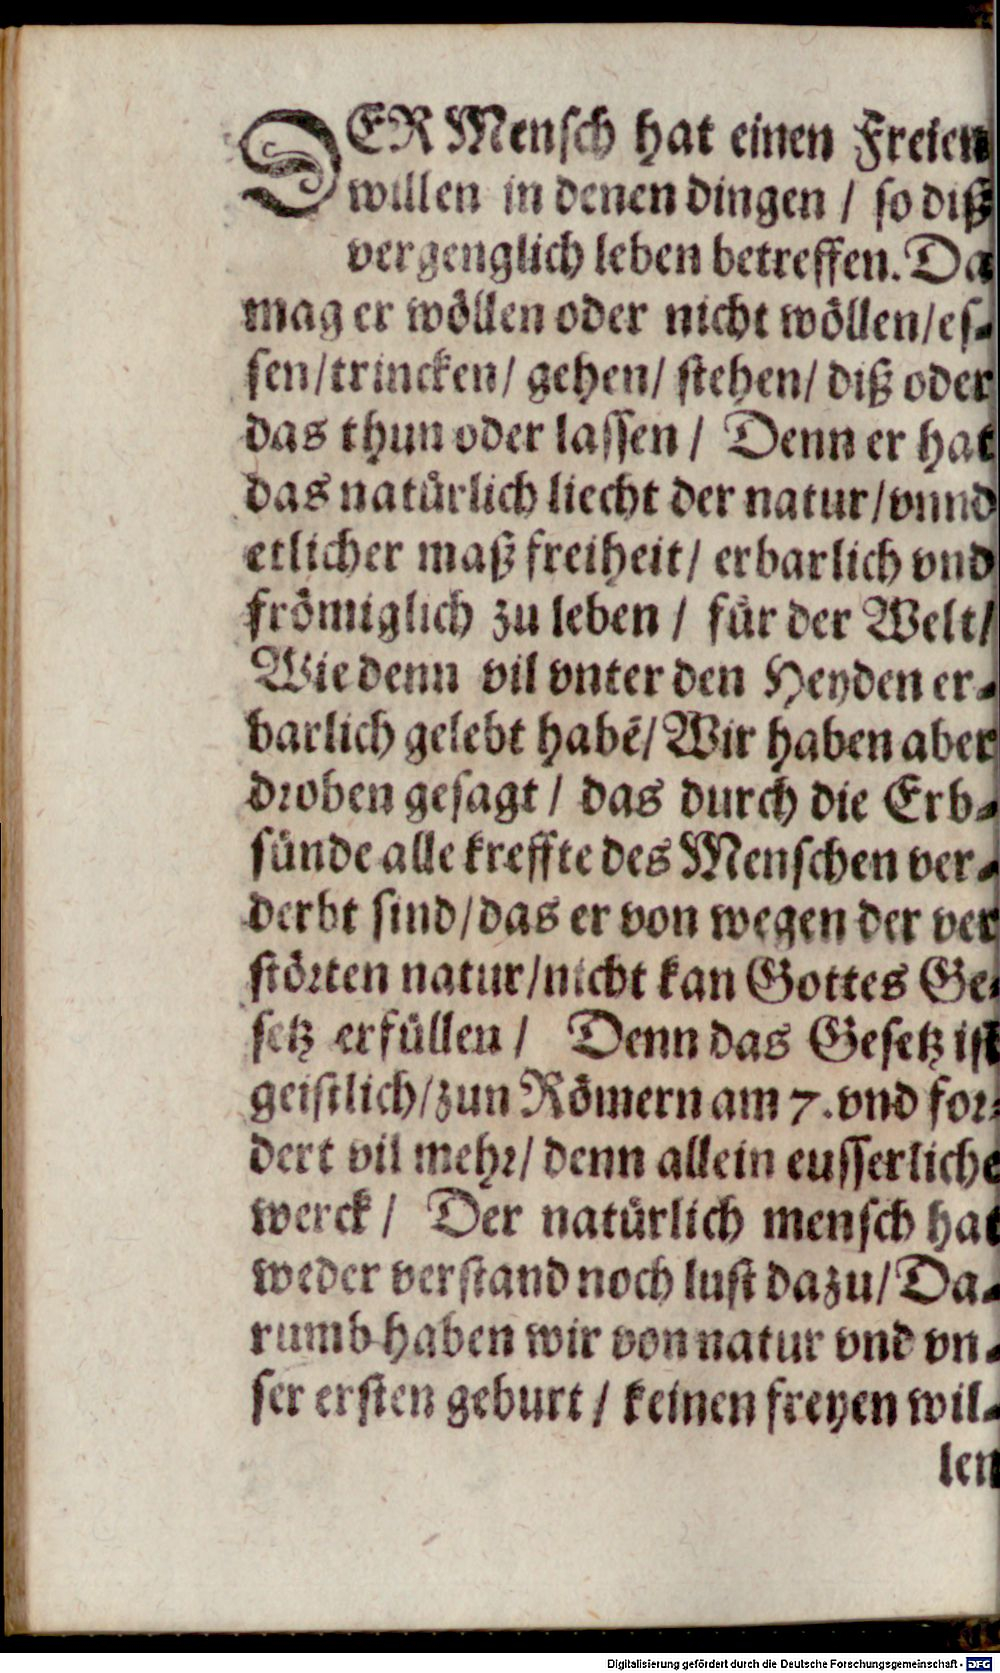 DER Mensch hat einen Freien
willen in denen dingen / so diß
vergenglich leben betreffen. Da
mag er wöllen oder nicht wöllen/es-
sen/trincken/ gehen/ stehen/ diß oder
das thun oder lassen / Denn er hat
das natürlich liecht der natur/vnnd
etlicher maß freiheit/ erbarlich vnd
frömiglich zu leben / für der Welt/
Wie denn vil vnter den Heyden er-
barlich gelebt habē/Wir haben aber
droben gesagt / das durch die Erb-
sünde alle kreffte des Menschen ver-
derbt sind/das er von wegen der ver
störten natur/nicht kan Gottes Ge-
setz erfüllen / Denn das Gesetz ist
geistlich/zun Römern am 7. vnd for-
dert vil mehr/ denn allein eusserliche
werck / Der natürlich mensch hat
weder verstand noch lust dazu/Da-
rumb haben wir von natur vnd vn-
ser ersten geburt / keinen freyen wil-
len
Digitalisierung gefördert durch die Deutsche Forschungsgemeinschaft - DFG